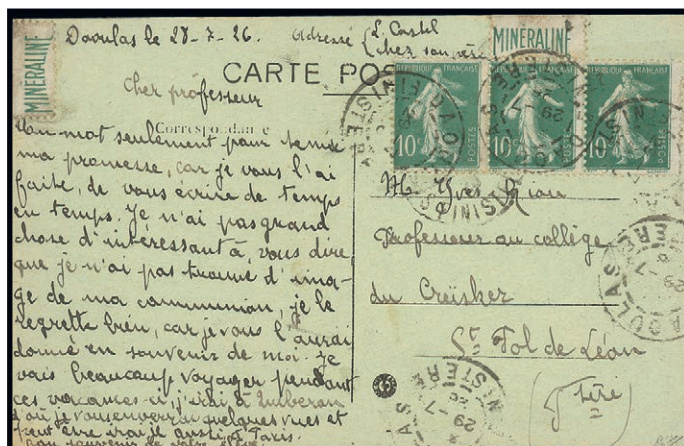 Daoulas le 28-7-26. adresse L. Castel
chez son père
MINERALINE
MINERALINE
CARTE POS
Cher professeur
Correspondance
Un mot seulement pour tenir
ma promesse, car je vous l'ai
faite, de vous écrire de temps
en temps. Je n'ai pas grand
chose d'intéressant à vous dire
que je n'ai pas trouvé d'ima-
ge de ma communion, je le
regrette bien, car je vous l'aurai
donné en souvenir de moi. Je
vais beaucoup voyager pendant
ces vacances-ci, j'irai à Quiberon
d'où je vous enverrai quelques vues et
peut être irai je aussi à Paris.
Bon souvenir de votre élève
REPUBLIQUE FRANÇAISE
10c POSTES
REPUBLIQUE FRANÇAISE
10c POSTES
REPUBLIQUE FRANÇAISE
10c POSTES
M. Yves Rion
Professeur au collège
du Creïsker
St Pol de Léon
(Ftère)
DAOULAS
29-7
FINISTERE